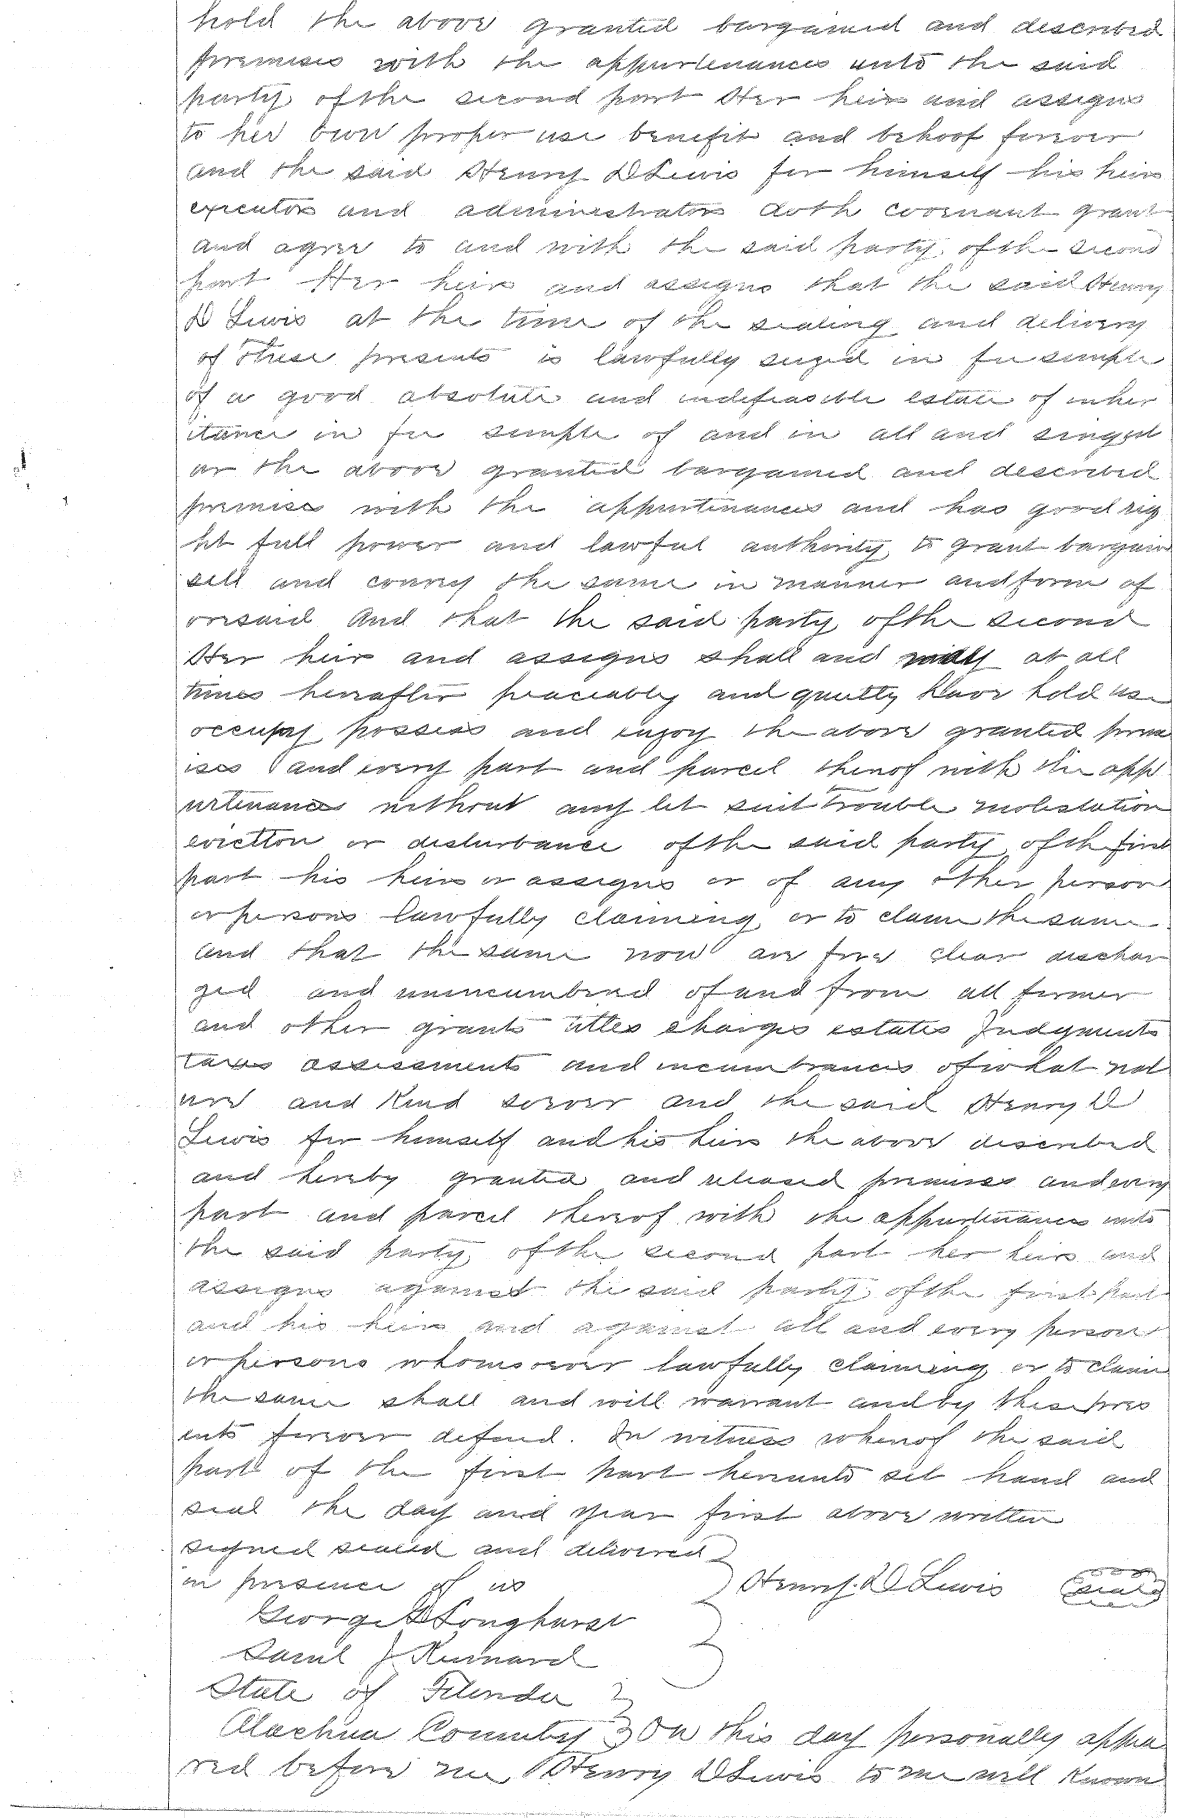 hold the above granted bargained and described
premises with the appurtenances unto the said
party of the second part Her heirs and assigns
to her own proper use benefit and behoof forever
and the said Henry D Lewis for himself his heirs
executors and administrators doth covenant grant
and agree to and with the said party of the second
part Her heirs and assigns that the said Henry
D Lewis at the time of the sealing and delivery
of these presents is lawfully seized in fee simple
of a good absolute and indefeasible estate of inher
itance in fee simple of and in all and singul
ar the above granted bargained and described
premises with the appurtenances and has good rig
ht full power and lawful authority to grant bargain
sell and convey the same in manner and form af
oresaid And that the said party of the second
Her heirs and assigns shall and may at all
times hereafter peaceably and quietly have hold use
occupy possess and enjoy the above granted prem
ises and every part and parcel thereof with the app
urtenances without any let suit trouble molestation
eviction or disturbance of the said party of the first
part his heirs or assigns or of any other person
or persons lawfully claiming or to claim the same
and that the same now are free clear dischar
ged and unincumbered of and from all former
and other grants titles charges estates Judgments
taxes assessments and incumbrances of what nat
ure and Kind soever and the said Henry D
Lewis for himself and his heirs the above described
and hereby granted and released premises and every
part and parcel thereof with the appurtenances unto
the said party of the second part her heirs and
assigns against the said party of the first part
and his heirs and against all and every person
or persons whomsoever lawfully claiming or to claim
the same shall and will warrant and by these pres
ents forever defend. In witness whereof the said
part of the first part hereunto set hand and
seal the day and year first above written
signed sealed and delivered
in presence of us Henry. D Lewis seal
George D Longhurst
Saml J Kennard
State of Florida
Alachua County On this day personally appea
red before me Henry D Lewis to me well Known